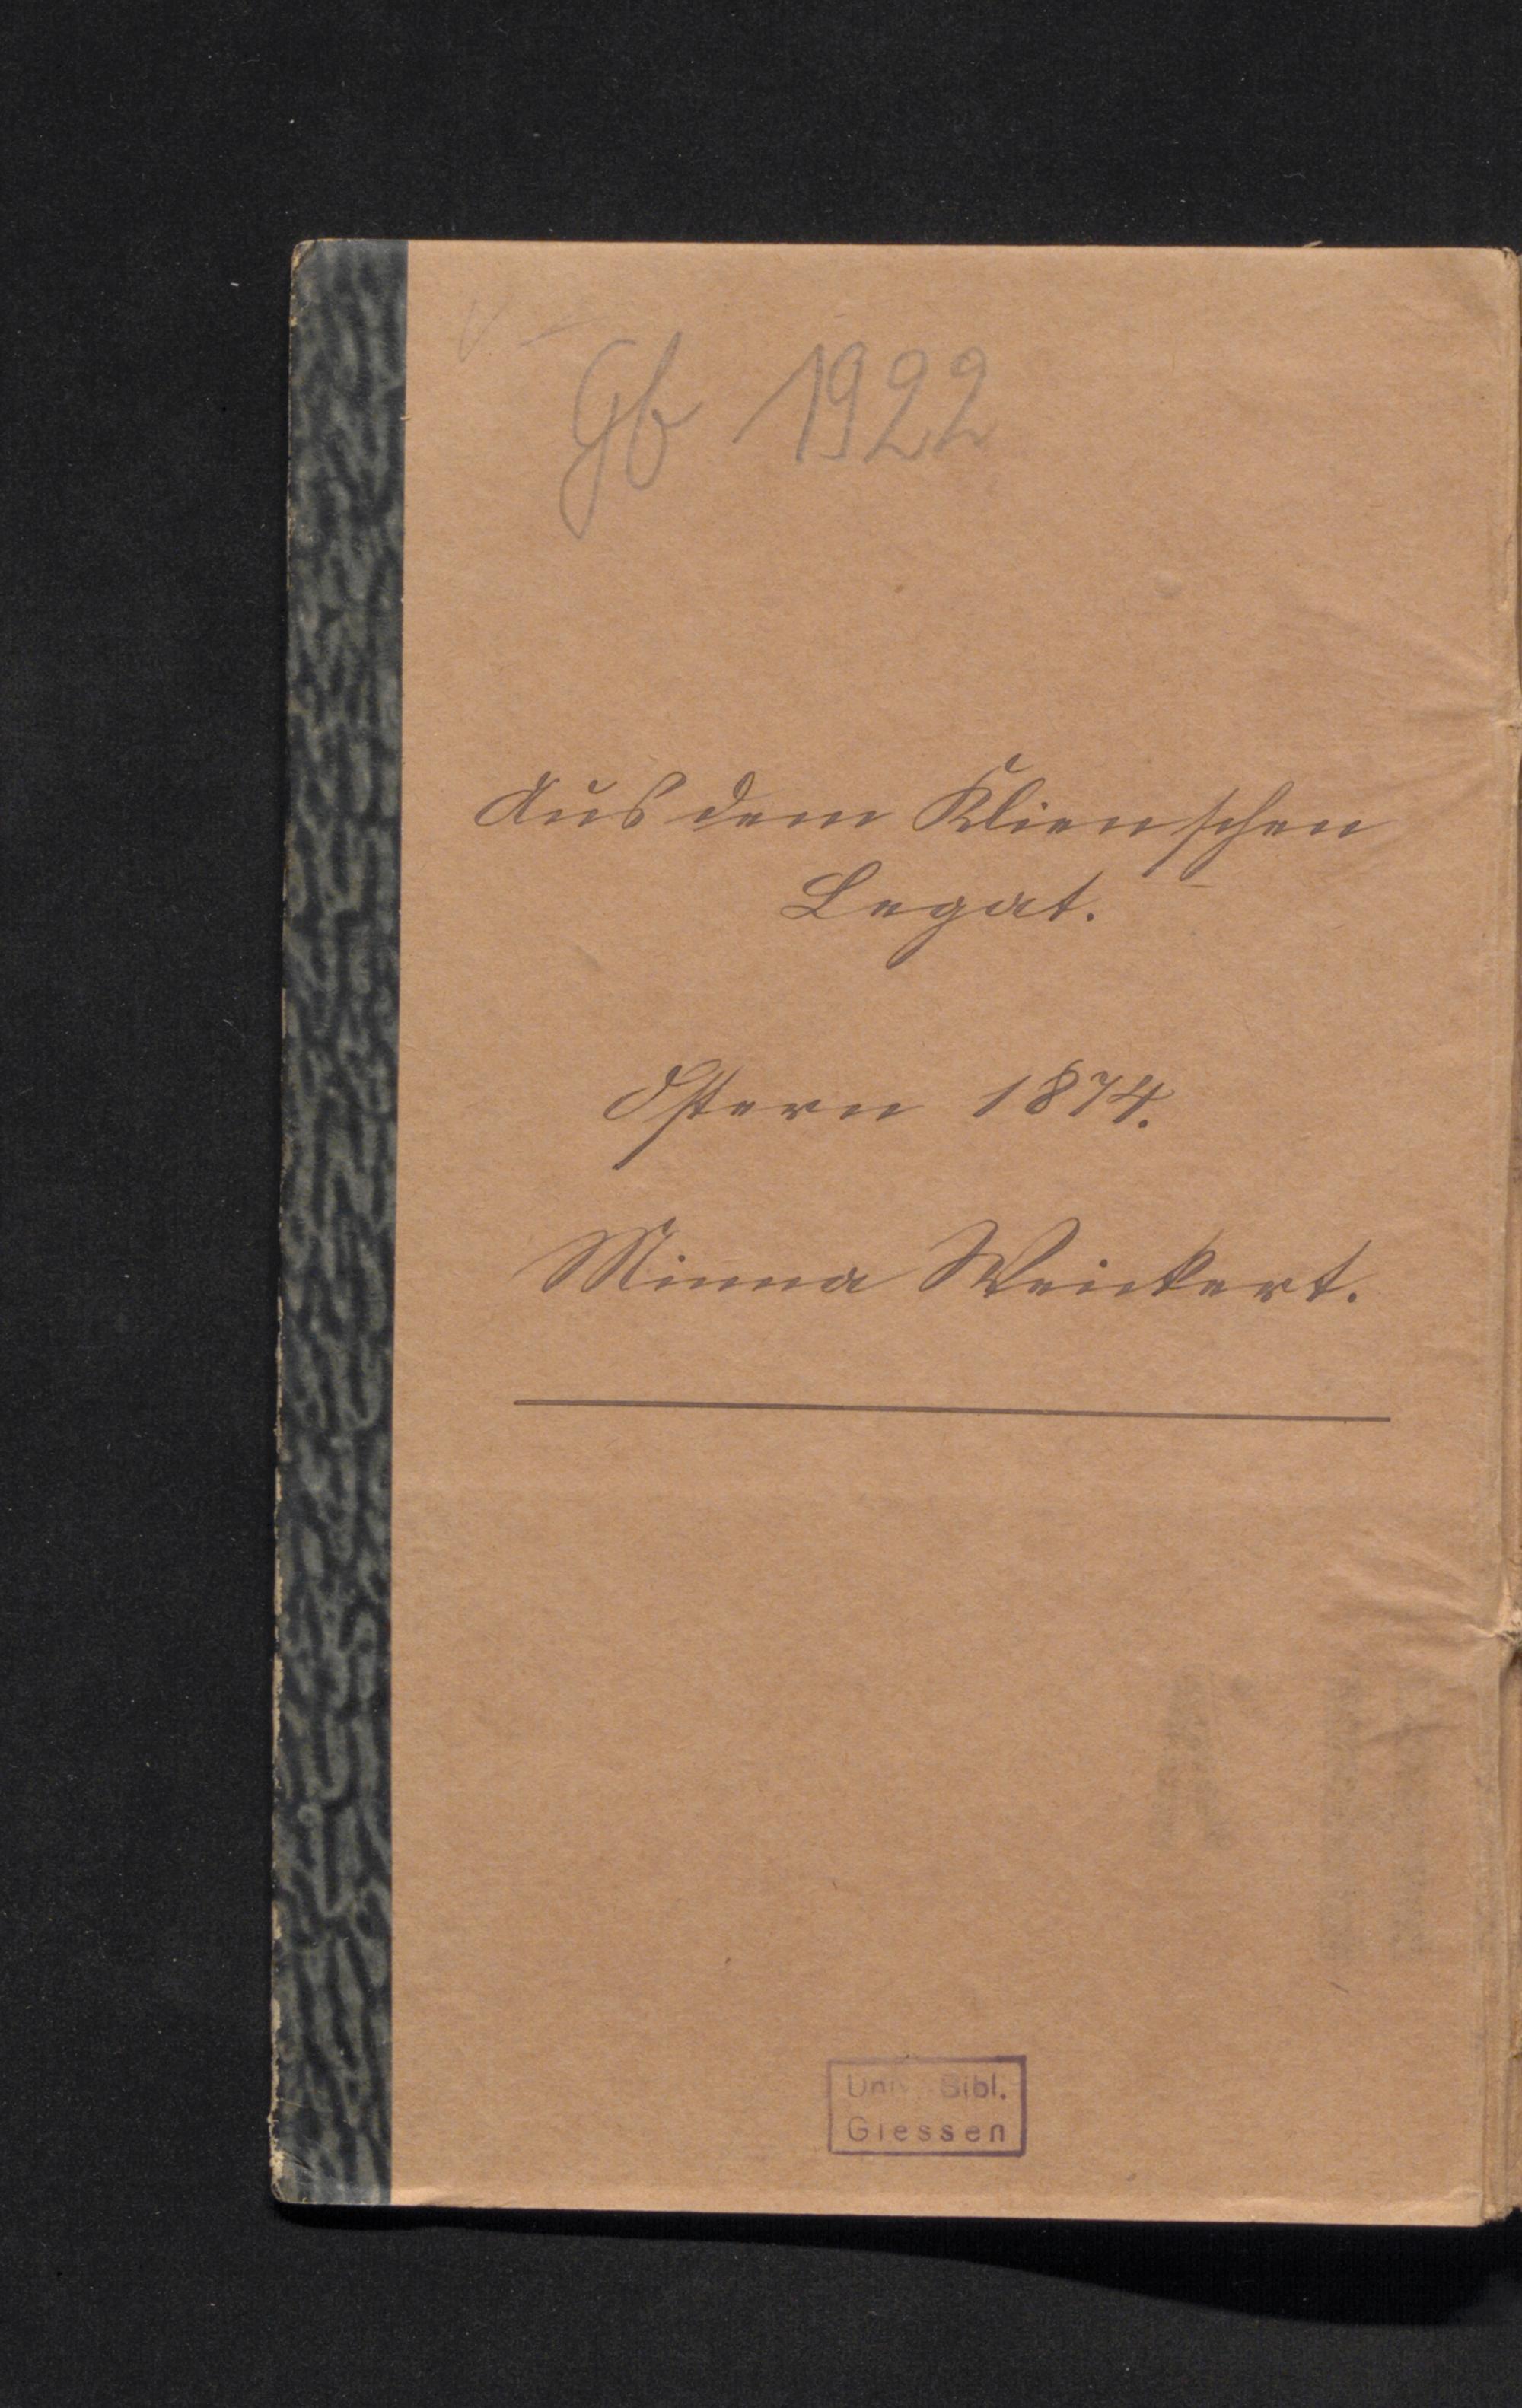 Gf 1922
Aus dem Klienschen
Legat.
Ostern 1874.
Minna Weickert.
Univ. Bibl.
Giessen